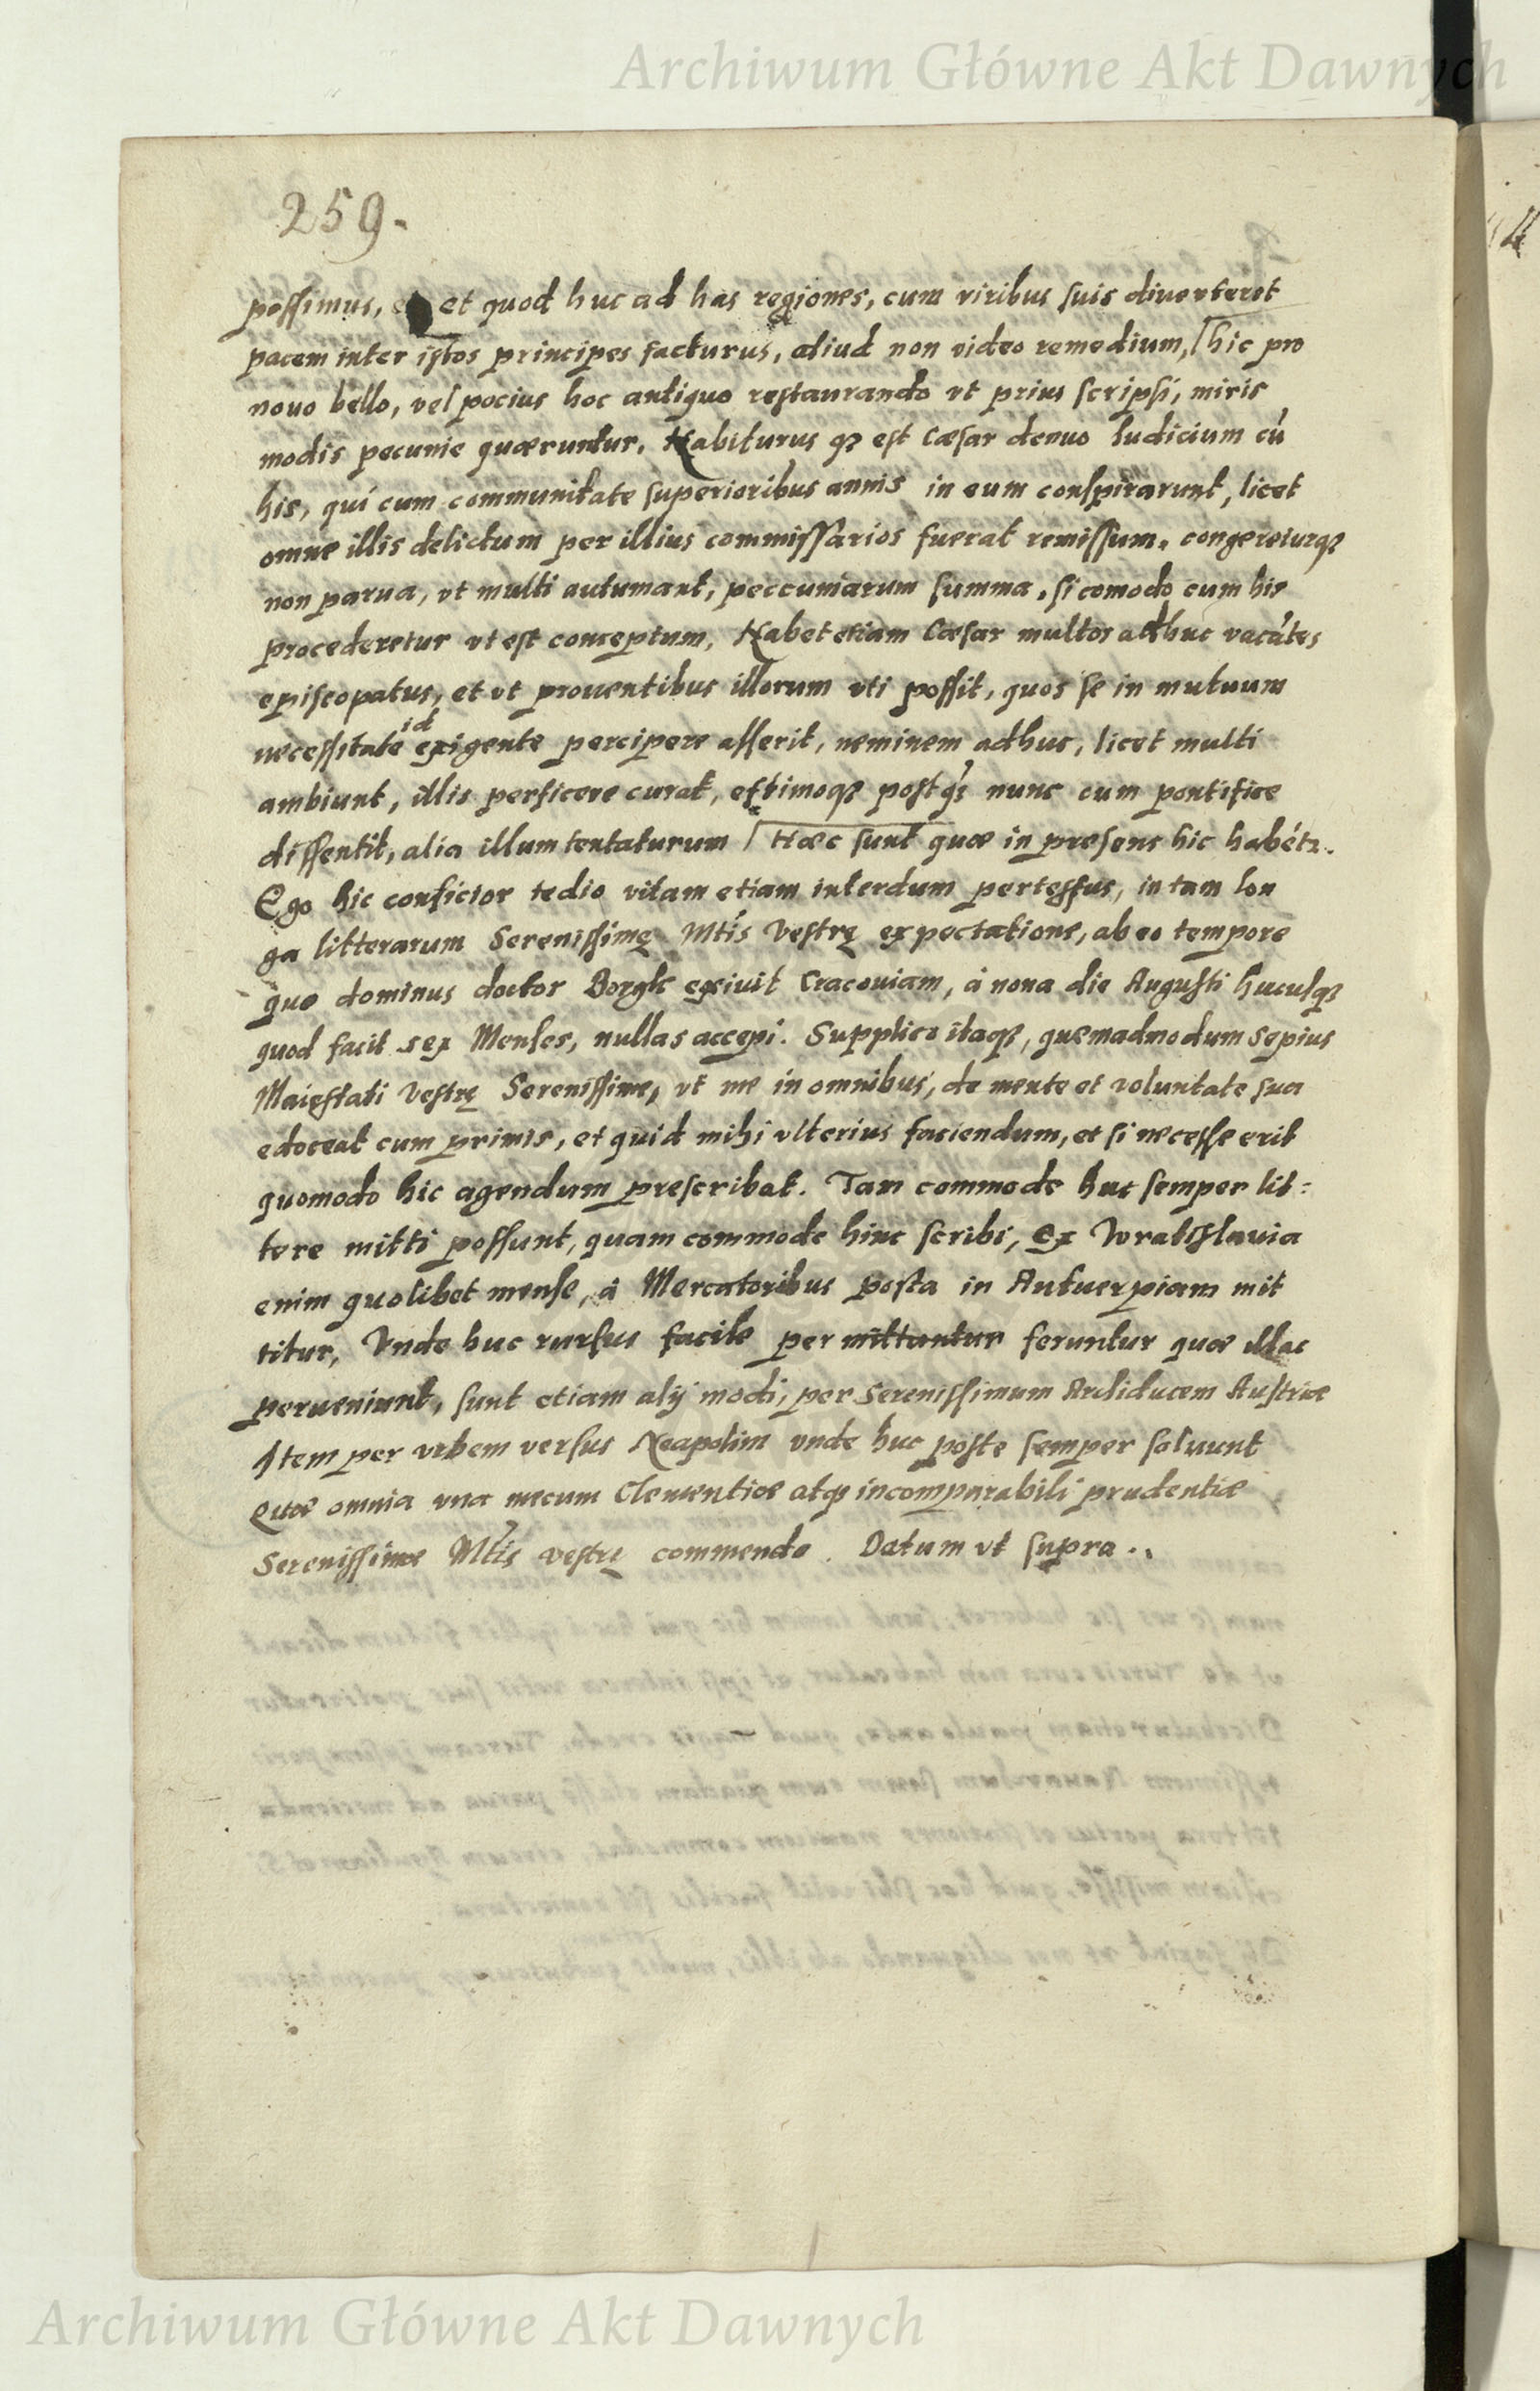 Archiwum Główne Akt Dawnych
259.
possimus, et quod huc ad has regiones, cum viribus suis diverteret
pacem inter istos principes facturus, aliud non video remedium, hic pro
nouo bello, vel pocius hoc antiquo restaurando vt prius scripsi, miris
modis pecunie quæruntur. Habiturus qȝ est Cæsar denuo Iudicium cū
his, qui cum communitate superioribus annis in eum conspirarunt, licet
omne illis delictum per illius commissarios fuerat remissum. congereturqȝ
non parua, vt multi autumant, peccuniarum summa, si comodo cum his
procederetur vt est conceptum. Habet etiam Cæsar multos adhuc vacātes
episcopatus, et vt prouentibus illorum vti possit, quos se in mutuum
necessitate id exigente percipere asserit, neminem adhuc, licet multi
ambiunt, illis perficere curat, estimoqȝ postq̄ nunc cum pontifice
dissentit, alia illum tentaturum Hæc sunt quæ in presens hic habētr.
Ego hic conficior tedio vitam etiam interdum pertessus, in tam lon
ga litterarum Serenissimę Mtis Vestrę expectatione, ab eo tempore
quo dominus doctor Borgk exiuit Cracouiam, à nona die Augusti hucusqȝ
quod facit sex Menses, nullas accepi. Supplico itaqȝ, quemadmodum sepius
Maiestati Vestrę Serenissime, vt me in omnibus, de mente et voluntate sua
edoceat cum primis, et quid mihi vlterius faciendum, et si necesse erit
quomodo hic agendum prescribat. Tam commode huc semper lit=
tere mitti possunt, quam commode hinc scribi, Ex Wratislauia
enim quolibet mense, à Mercatoribus posta in Antuerpiam mit
titur, Vnde huc rursus facile per mittuntur feruntur quæ illac
perueniunt, sunt etiam alij modi, per Serenissimum Archiducem Austriæ
Item per vrbem versus Neapolim vnde huc poste semper soluunt
Quæ omnia vna mecum Clementiæ atqȝ incomparabili prudentiæ
Serenissimæ Mtis vestrę commendo. Datum vt supra..
Archiwum Główne Akt Dawnych